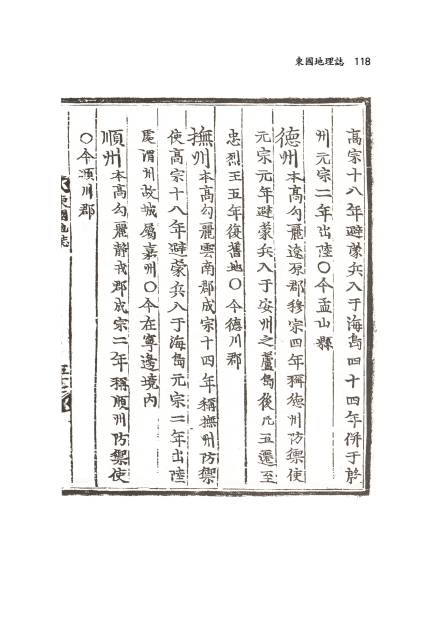 東國地理誌 118
高宗十八年避蒙兵入于海島四十四年併于殷
州元宗二年出陸〇今孟山縣
德州本高勾麗遼原郡穆宗四年稱德州防禦使
元宗元年避蒙兵入于安州之蘆島後凡五遷至
忠烈王五年復舊地〇今德川郡
撫州本高勾麗雲南郡成宗十四年稱撫州防禦
使高宗十八年避蒙兵入于海島元宗二年出陸
處渭州故城屬嘉州〇今在寧邊境內
順州本高勾麗靜戎郡成宗二年稱順州防禦使
〇今順川郡
東國地誌